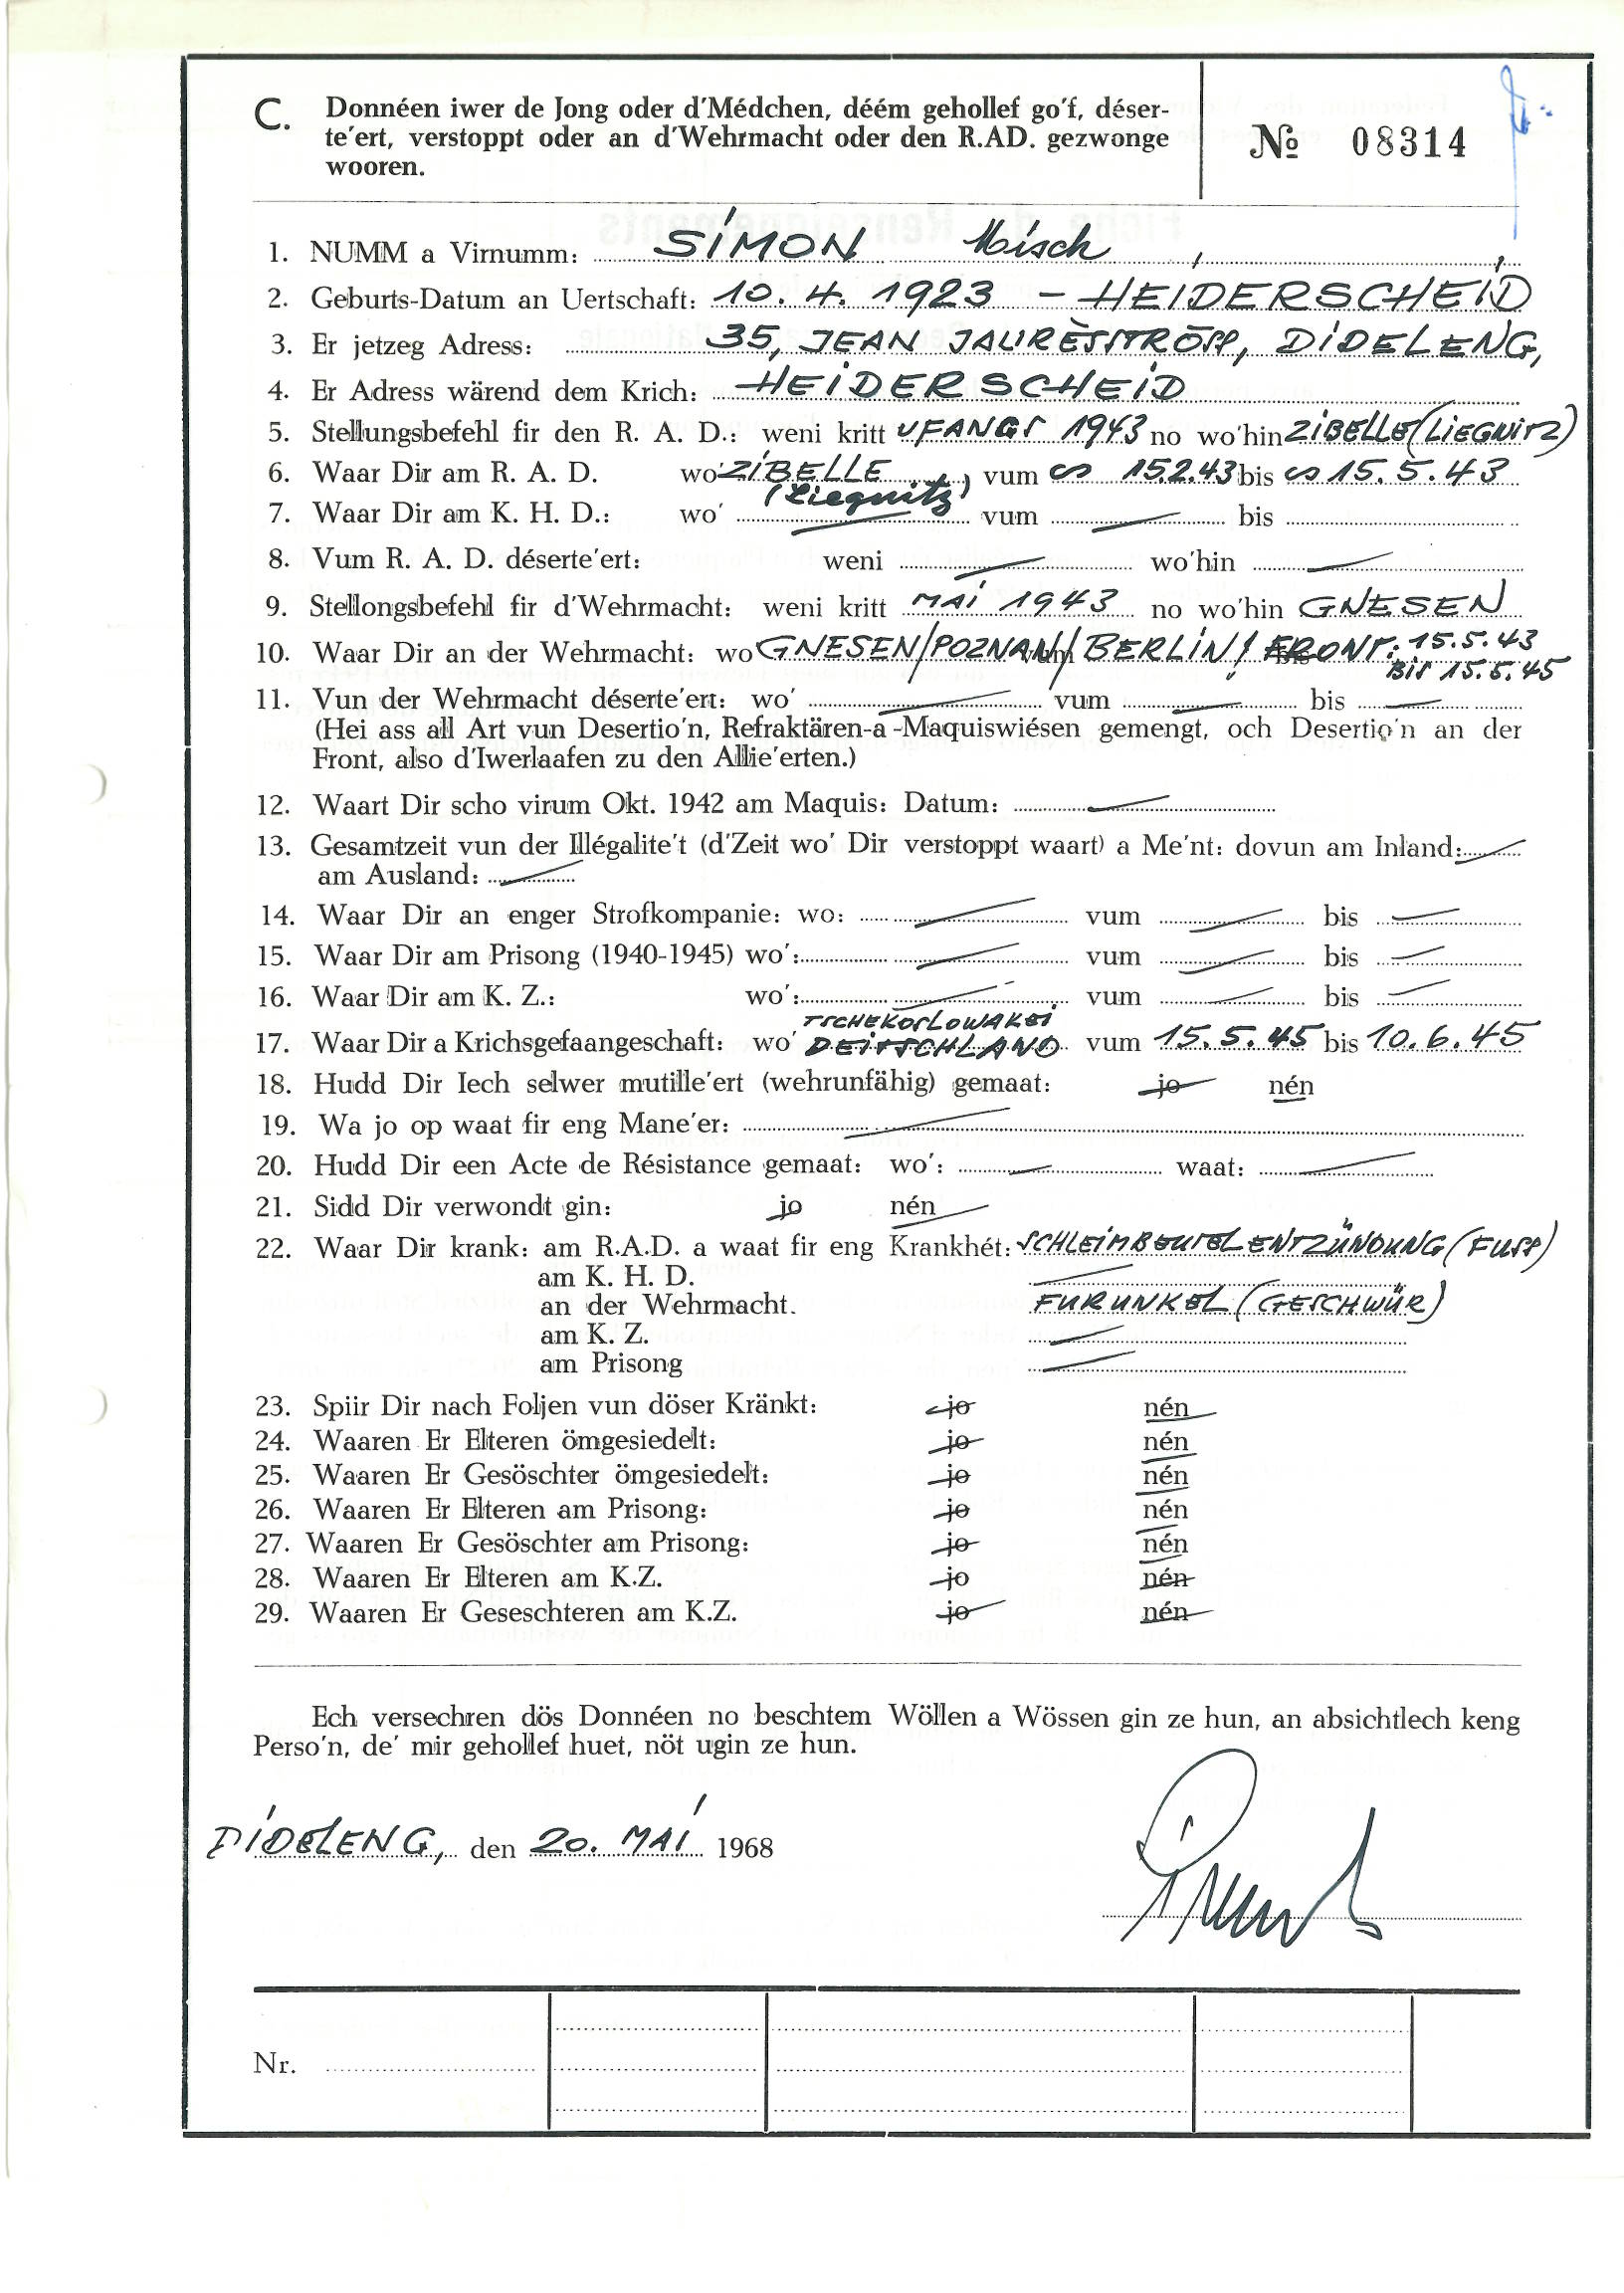 C. Donnéen iwer de Jong oder d'Médchen, déém gehollef go'f, déser-
te'ert, verstoppt oder an d'Wehrmacht oder den R.AD. gezwonge
wooren.
№ 08314
1. NUMM a Virnumm: SIMON Misch
2. Geburts-Datum an Uertschaft: 10. 4. 1923 – HEIDERSCHEID
3. Er jetzeg Adress: 35, JEAN JAURÈSSTRÖSS, DIDELENG,
4. Er Adress wärend dem Krich: HEIDERSCHEID
5. Stellungsbefehl fir den R. A. D.: weni kritt UFANGS 1943 no wo'hin ZIBELLE (LIEGNITZ)
6. Waar Dir am R. A. D. wo' ZIBELLE (Liegnitz) vum ∽ 15.2.43 bis ∽ 15.5.43
7. Waar Dir am K. H. D.: wo' vum bis
8. Vum R. A. D. déserte'ert: weni wo'hin
9. Stellongsbefehl fir d'Wehrmacht: weni kritt MAI 1943 no wo'hin GNESEN
10. Waar Dir an der Wehrmacht: wo GNESEN/POZNAN/ vum BERLIN/ bis FRONT: 15.5.43
BIS 15.5.45
11. Vun der Wehrmacht déserte'ert: wo' vum bis
(Hei ass all Art vun Desertio'n, Refraktären-a-Maquiswiésen gemengt, och Desertio'n an der
Front, also d'Iwerlaafen zu den Allie'erten.)
12. Waart Dir scho virum Okt. 1942 am Maquis: Datum:
13. Gesamtzeit vun der Illégalite't (d'Zeit wo' Dir verstoppt waart) a Me'nt: dovun am Inland:
am Ausland:
14. Waar Dir an enger Strofkompanie: wo: vum bis
15. Waar Dir am Prisong (1940-1945) wo': vum bis
16. Waar Dir am K. Z.: wo': vum bis
TSCHEKOSLOWAKEI
17. Waar Dir a Krichsgefaangeschaft: wo' DEITSCHLAND vum 15.5.45 bis 10.6.45
18. Hudd Dir Iech selwer mutille'ert (wehrunfähig) gemaat: jo nén
19. Wa jo op waat fir eng Mane'er:
20. Hudd Dir een Acte de Résistance gemaat: wo': waat:
21. Sidd Dir verwondt gin: jo nén
22. Waar Dir krank: am R.A.D. a waat fir eng Krankhét: SCHLEIMBEUTELENTZÜNDUNG (FUSS)
am K. H. D.
an der Wehrmacht. FURUNKEL (GESCHWÜR)
am K. Z.
am Prisong
23. Spiir Dir nach Foljen vun döser Kränkt: jo nén
24. Waaren Er Elteren ömgesiedelt: jo nén
25. Waaren Er Gesöschter ömgesiedelt: jo nén
26. Waaren Er Elteren am Prisong: jo nén
27. Waaren Er Gesöschter am Prisong: jo nén
28. Waaren Er Elteren am K.Z. jo nén
29. Waaren Er Geseschteren am K.Z. jo nén
Ech versechren dös Donnéen no beschtem Wöllen a Wössen gin ze hun, an absichtlech keng
Perso'n, de' mir gehollef huet, nöt ugin ze hun.
DIDELENG, den 20. MAI 1968
Nr.